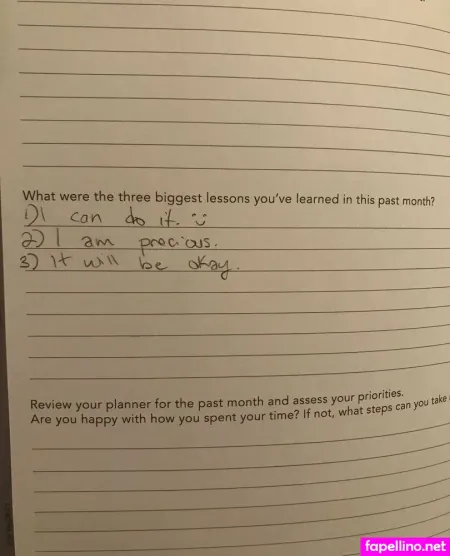 What were the three biggest lessons you've learned in this past month?
1) I can do it. :)
2) I am precious.
3) It will be okay.
Review your planner for the past month and assess your priorities.
Are you happy with how you spent your time? If not, what steps can you take
fapellino.net